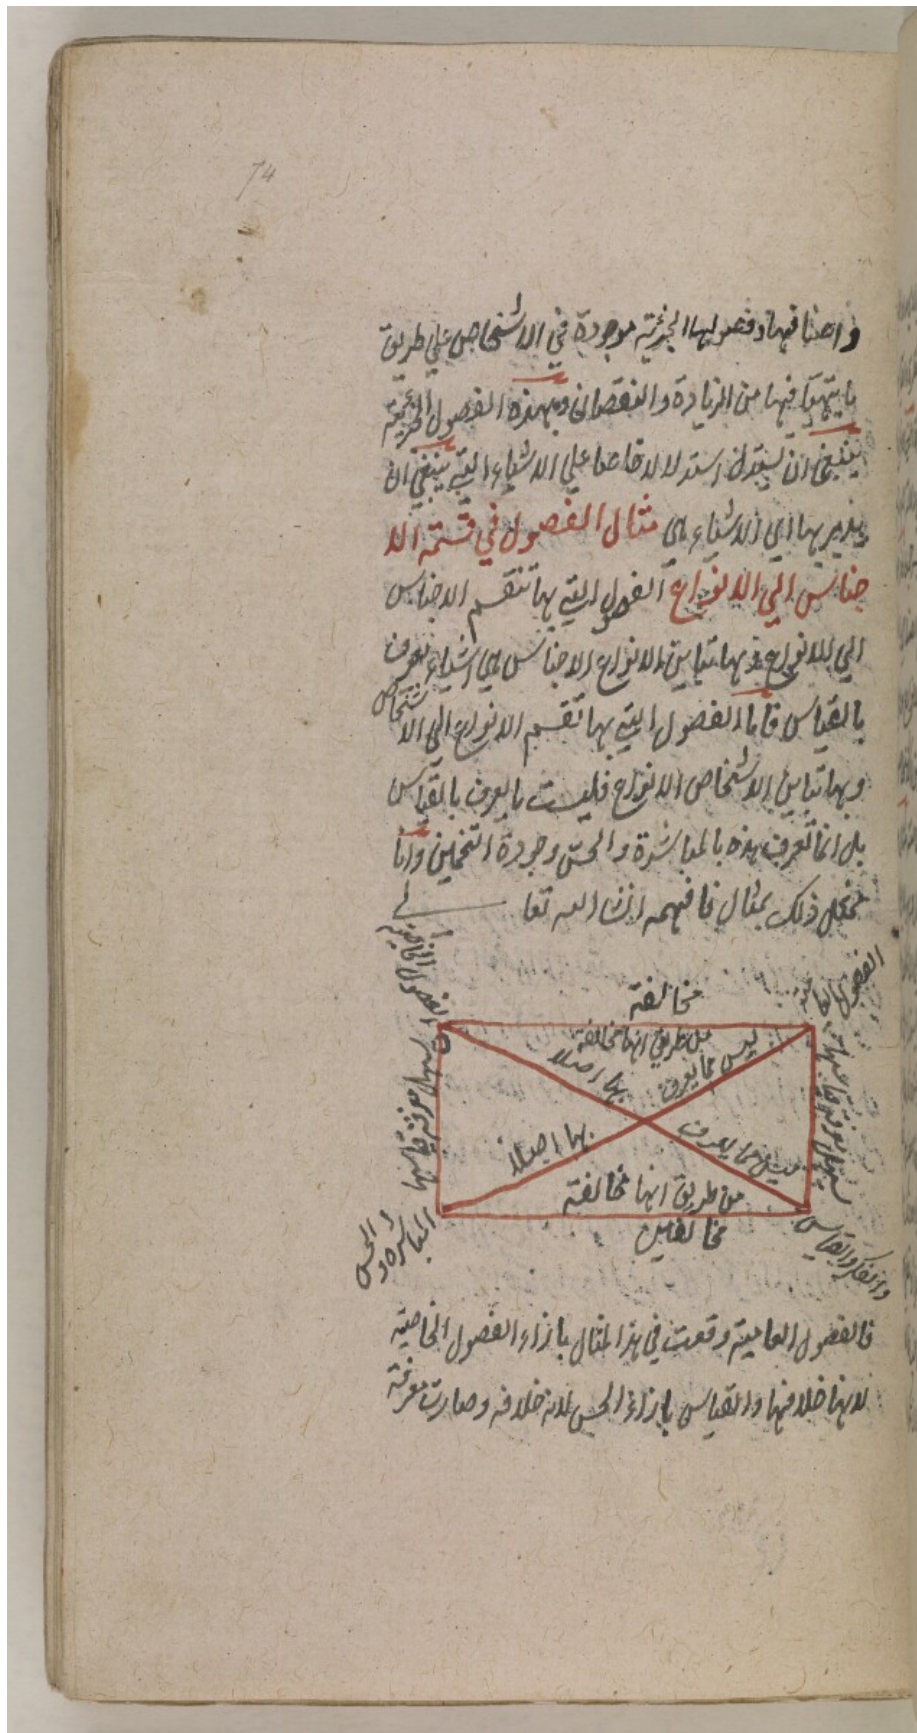 74
واصنافها وفصولها الجزئية موجودة في الاشخاص علي طريق
ما يتهيّا فيها من الزيادة والنقصان وبهذه الفصول الجزئية
ينبغي ان يستدل استدلالا خاصا علي الاشياء التي ينبغي ان
يدبر بها اي الاشياء هي مثال الفصول في قسمة الا
جناس الي الانواع الفصول التي بها تنقسم الاجناس
الي الانواع وبها تباين الانواع الاجناس هي اشياء تعرف
بالقياس فاما الفصول التي بها تقسم الانواع الي الاشخاص
وبها تباين الاشخاص الانواع فليست ما يعرف بالقياس
بل انما تعرف هذه بالمباشرة والحس وجودة التخمين وانا
ممثل ذلك بمثال فافهمه انشا الله تعا
الفصول العامية
مخالفة
من طريق انها مخالفة
ليس مما يعرف
بها اصلا
بها اصلا
ليس مما يعرف
من طريق انها مخالفة
مخالفين
والفكر والقياس
المباشرة والحس
فالفصول العامية وقعت في هذا المثال بازاء الفصول الخاصية
لانها خلافها والقياس بازاء الحس لانه خلافه وصارت معرفة